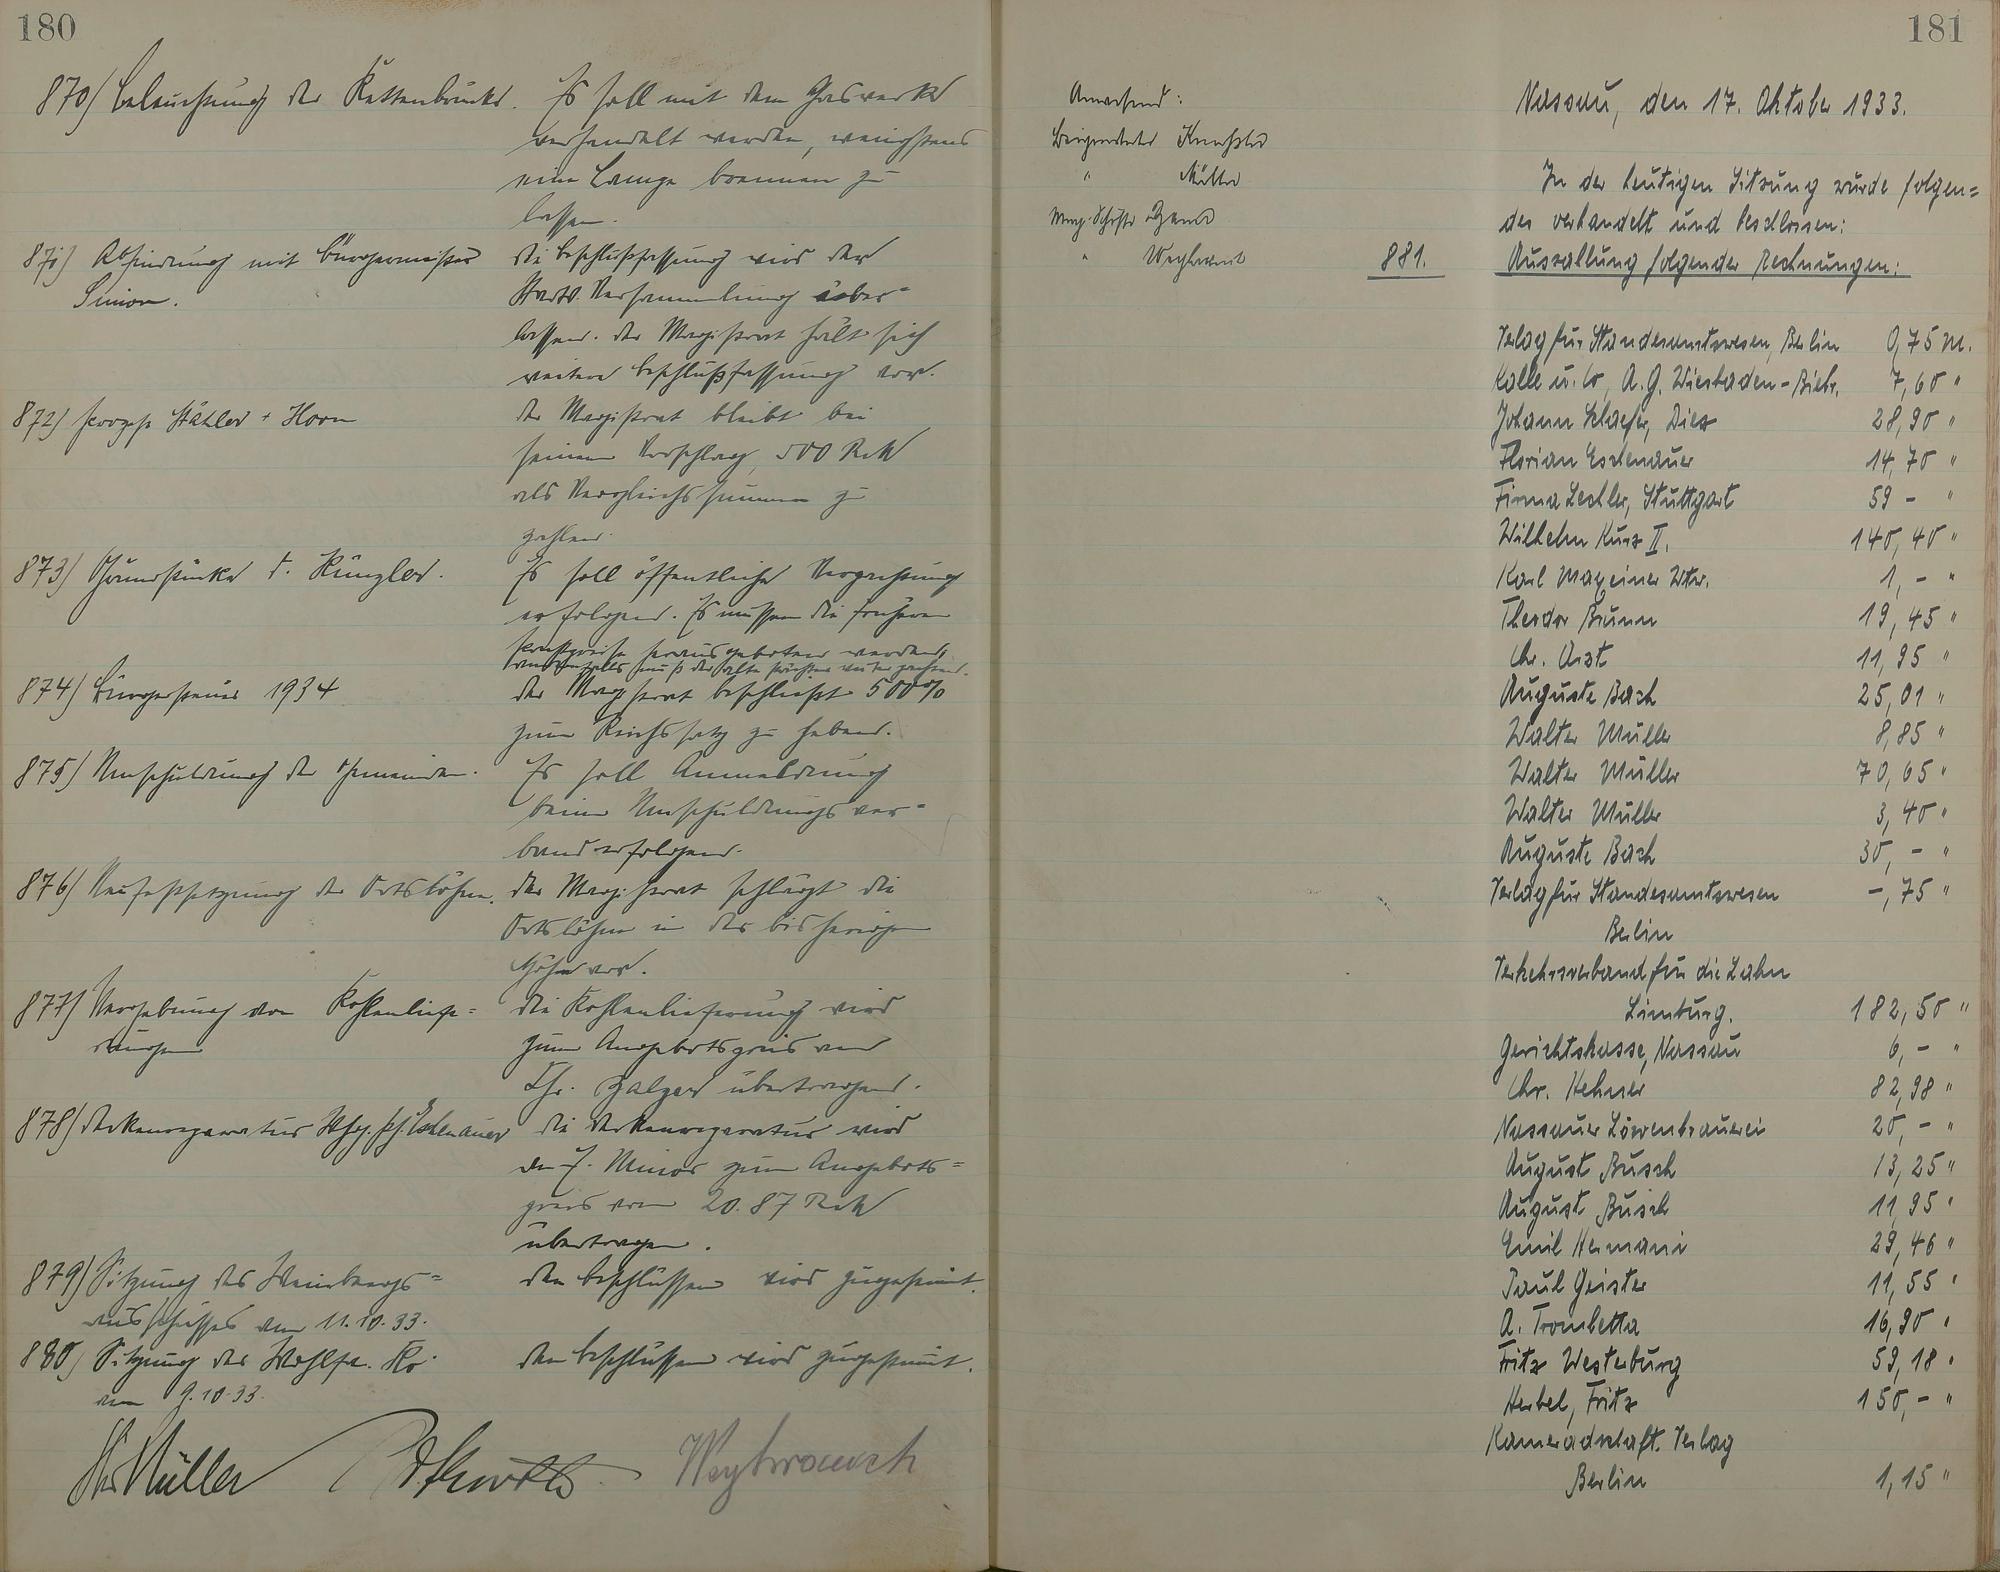 180
870) Beleuchtung der Kettenbrücke. Es soll mit dem Gaswerk
verhandelt werden, wenigstens
eine Lampe brennen zu
lassen.
871) Abfindung mit Bürgermeister die Beschlußfassung wird der
Stadtv. Versammlung über=
lassen. der Magistrat hält sich
weitere Beschlußfassung vor.
872) Prozeß + Horn der Magistrat bleibt bei
seinem Vorschlag, 500 RM
als Vergleichssumme zu
zahlen.
873) Grundstücke d. Künzler. Es soll öffentliche Verpachtung
erfolgen. Es müssen die früheren
Pachtpreise herausgeboten werden,
muß der alte Pächter weiter
874) Bürgersteuer 1934 der Magistrat beschließt 500%
zum Reichssatz zu heben.
875) Umschuldung der Gemeinden. Es soll Anmeldung
beim Umschuldungsver=
band erfolgen.
876) Neufestsetzung der Ortslöhne. der Magistrat schlägt die
Ortslöhne in der bisherigen
Höhe vor.
877) Vergebung von Kohlenliefe= die Kohlenlieferung wird
rungen zum Angebotspreis an
Chr. Balzer übertragen.
878) Deckenreparatur Whg. Eschenauer die Deckenreparatur wird
an F. Minor zum Angebots=
preis von 20.87 RM
übertragen.
879) Sitzung des Weinbergs= den Beschlüssen wird zugestimmt.
ausschusses vom 11.10.33.
880) Sitzung der Wohlfa. Ko. den Beschlüssen wird zugestimmt.
vom 9.10.33.
Müller Weyhrauch
181
Anwesend:
Beigeordneter
" Müller
Mag. Schöffe
" Weyhrauch
Nassau, den 17. Oktober 1933.
In der heutigen Sitzung wurde folgen=
des verhandelt und beschlossen:
881. Auszahlung folgender Rechnungen:
Verlag für Standesamtswesen, Berlin 0,75 M.
Kalle u. Co, A.G. Wiesbaden-Biebr. 7,60 "
Johann Schaefer, Diez 28,90 "
Florian Eschenauer 14,70 "
Firma Lechler, Stuttgart 59 - "
Wilhelm Kurz II. 140,40 "
Karl Maxeiner Wtw. 1,- "
Theodor Bruun 19,45 "
Chr. Arzt 11,95 "
Auguste Bach 25,01 "
Walter Müller 8,85 "
Walter Müller 70,65 "
Walter Müller 3,40 "
Auguste Bach 30,- "
Verlag für Standesamtswesen -,75 "
Berlin
Verkehrsverband für die Lahn
Limburg. 182,50 "
Gerichtskasse, Nassau 6,- "
Chr. Hehner 82,98 "
Nassauer Löwenbrauerei 20,- "
August Busch 13,25 "
August Busch 11,95 "
Emil Hermani 29,46 "
Paul Geister 11,55 "
A. Trombetta 16,90 "
Fritz Westerburg 59,18 "
Herbel, Fritz 150,- "
Kameradschaft. Verlag
Berlin 1,15 "